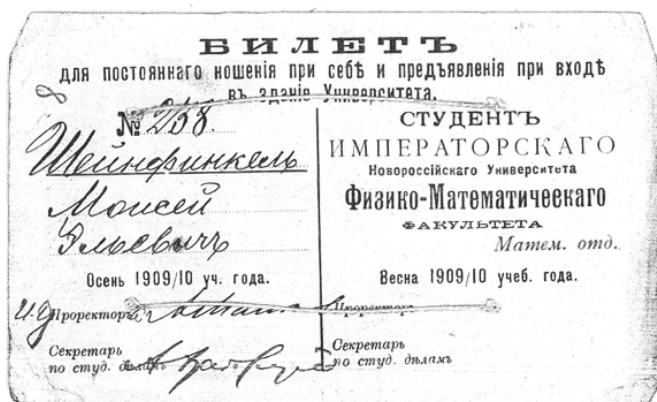 БИЛЕТЪ
для постояннаго ношенія при себѣ и предъявленія при входѣ
въ зданіе Университета.
№ 258.
Шейнфинкель
Моисей
Эльевичъ
Осень 1909/10 уч. года.
И. д. Проректоръ
Секретарь
по студ. дѣламъ
СТУДЕНТЪ
ИМПЕРАТОРСКАГО
Новороссійскаго Университета
Физико-Математическаго
ФАКУЛЬТЕТА
Матем. отд.
Весна 1909/10 учеб. года.
Проректоръ
Секретарь
по студ. дѣламъ